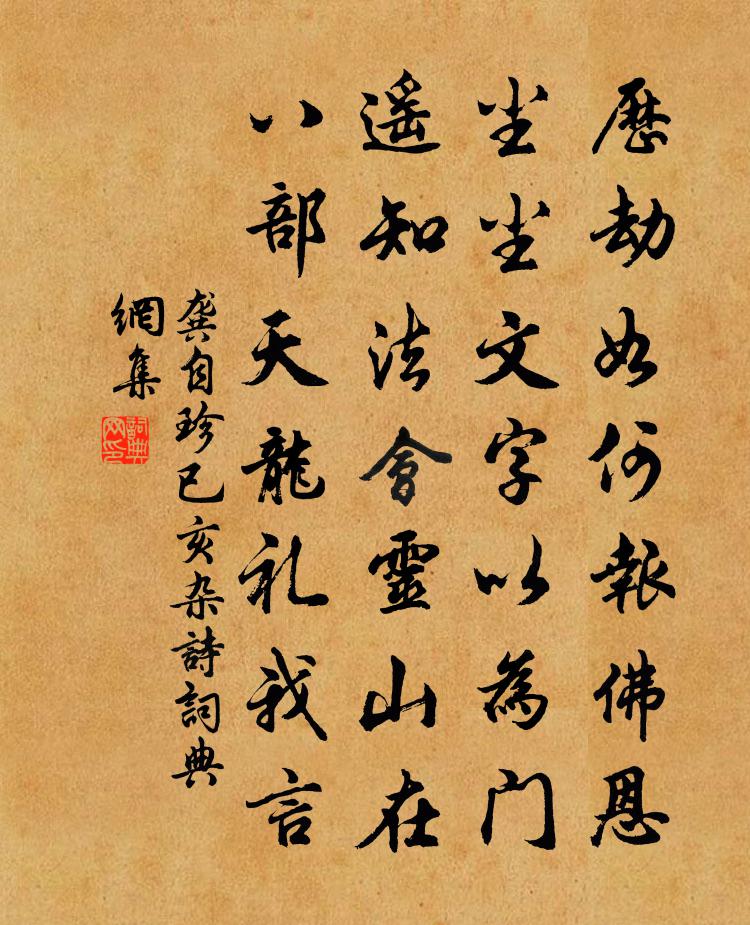 歷劫如何報佛恩
尘尘文字以為门
遥知法會靈山在
八部天龍礼我言
龚自珍已亥杂詩詞典
網集
詞典网印